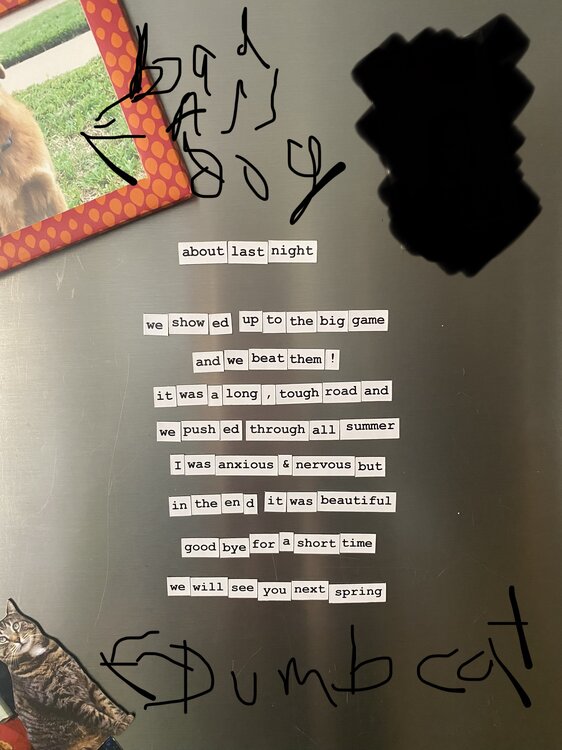 bad
Ass
dog
about last night
we show ed up to the big game
and we beat them !
it was a long , tough road and
we push ed through all summer
I was anxious & nervous but
in the en d it was beautiful
good bye for a short time
we will see you next spring
Dumb cat